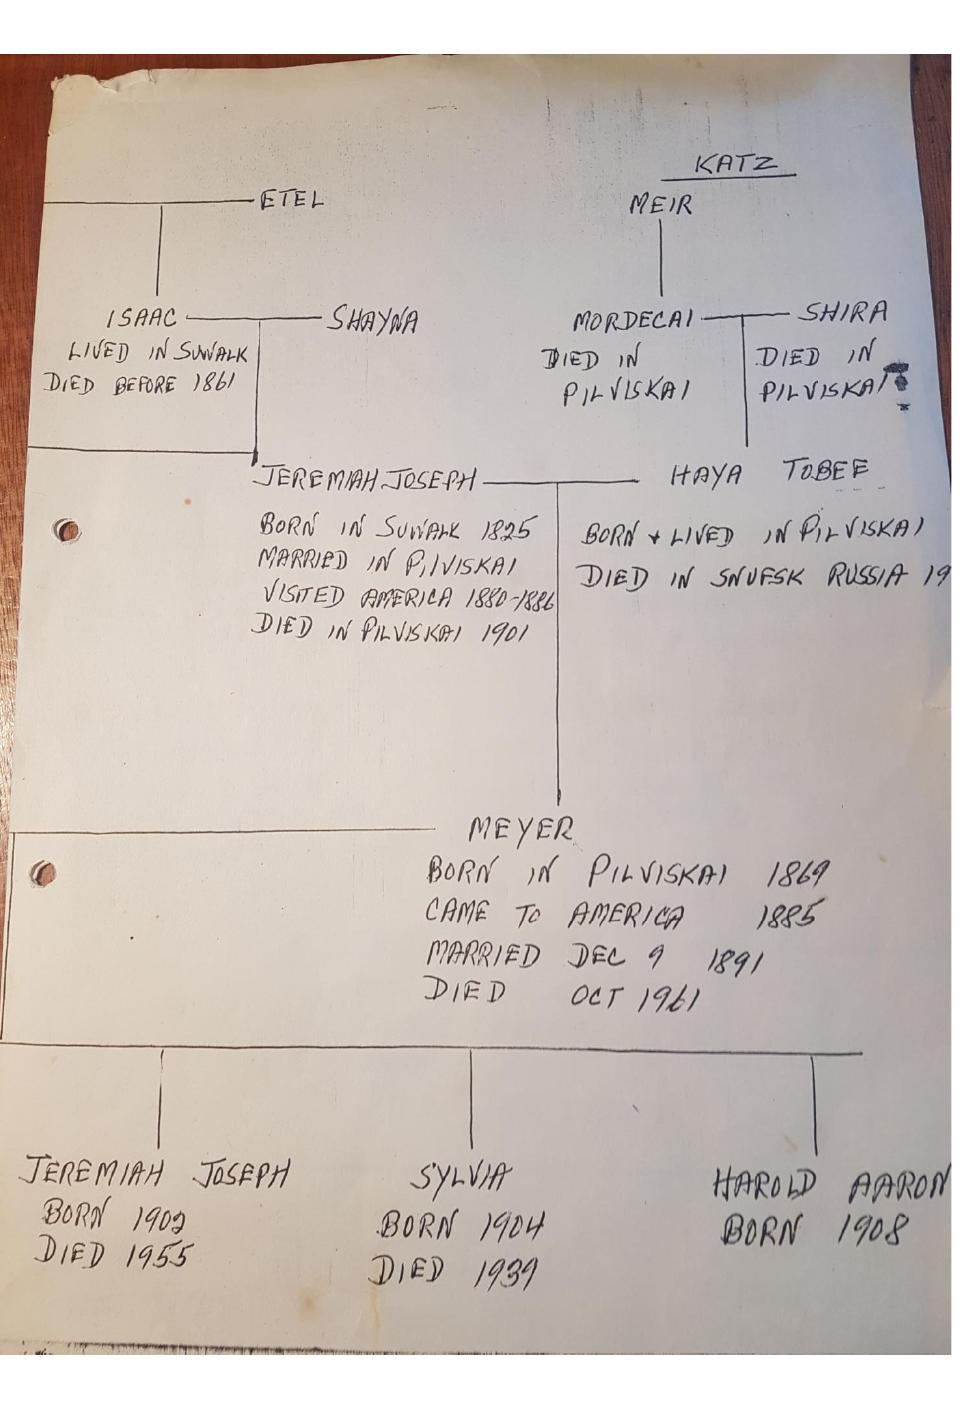 KATZ
ETEL
MEIR
ISAAC
SHAYNA
LIVED IN SUWALK
DIED BEFORE 1861
MORDECAI
DIED IN
PILVISKAI
SHIRA
DIED IN
PILVISKAI
JEREMIAH JOSEPH
BORN IN SUWALK 1825
MARRIED IN PILVISKAI
VISITED AMERICA 1880-1886
DIED IN PILVISKAI 1901
HAYA TOBEE
BORN + LIVED IN PILVISKAI
DIED IN RUSSIA 19
MEYER
BORN IN PILVISKAI 1869
CAME TO AMERICA 1885
MARRIED DEC 9 1891
DIED OCT 1961
JEREMIAH JOSEPH
BORN 1902
DIED 1955
SYLVIA
BORN 1904
DIED 1939
HAROLD AARON
BORN 1908